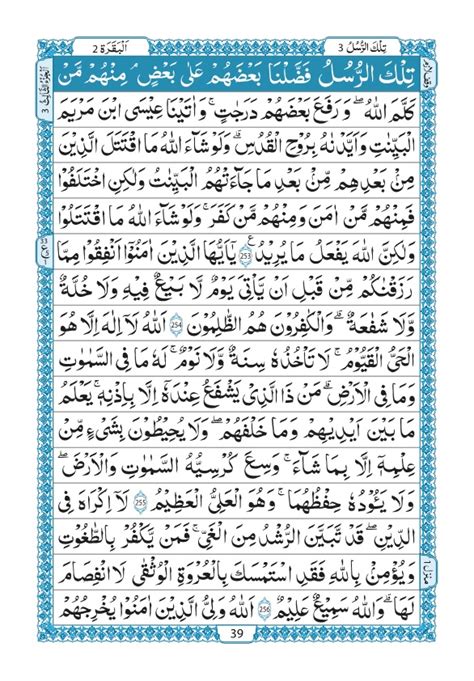 تِلْكَ الرُّسُلُ 3
اَلْبَقَرَة 2
تِلْكَ الرُّسُلُ فَضَّلْنَا بَعْضَهُمْ عَلٰى بَعْضٍ ۘ مِنْهُمْ مَّنْ
كَلَّمَ اللّٰهُ وَرَفَعَ بَعْضَهُمْ دَرَجٰتٍ ؕ وَاٰتَيْنَا عِيْسَى ابْنَ مَرْيَمَ
الْبَيِّنٰتِ وَاَيَّدْنٰهُ بِرُوْحِ الْقُدُسِ ؕ وَلَوْ شَآءَ اللّٰهُ مَا اقْتَتَلَ الَّذِيْنَ
مِنْۢ بَعْدِهِمْ مِّنْۢ بَعْدِ مَا جَآءَتْهُمُ الْبَيِّنٰتُ وَلٰكِنِ اخْتَلَفُوْا
فَمِنْهُمْ مَّنْ اٰمَنَ وَمِنْهُمْ مَّنْ كَفَرَ ؕ وَلَوْ شَآءَ اللّٰهُ مَا اقْتَتَلُوْا
وَلٰكِنَّ اللّٰهَ يَفْعَلُ مَا يُرِيْدُ 253 يٰۤاَيُّهَا الَّذِيْنَ اٰمَنُوْۤا اَنْفِقُوْا مِمَّا
رَزَقْنٰكُمْ مِّنْ قَبْلِ اَنْ يَّاْتِيَ يَوْمٌ لَّا بَيْعٌ فِيْهِ وَلَا خُلَّةٌ
وَّلَا شَفَاعَةٌ ؕ وَالْكٰفِرُوْنَ هُمُ الظّٰلِمُوْنَ 254 اَللّٰهُ لَاۤ اِلٰهَ اِلَّا هُوَ
الْحَيُّ الْقَيُّوْمُ ۚ لَا تَاْخُذُهٗ سِنَةٌ وَّلَا نَوْمٌ ؕ لَهٗ مَا فِى السَّمٰوٰتِ
وَمَا فِى الْاَرْضِ ؕ مَنْ ذَا الَّذِيْ يَشْفَعُ عِنْدَهٗۤ اِلَّا بِاِذْنِهٖ ؕ يَعْلَمُ
مَا بَيْنَ اَيْدِيْهِمْ وَمَا خَلْفَهُمْ ۚ وَلَا يُحِيْطُوْنَ بِشَيْءٍ مِّنْ
عِلْمِهٖۤ اِلَّا بِمَا شَآءَ ۚ وَسِعَ كُرْسِيُّهُ السَّمٰوٰتِ وَالْاَرْضَ ۚ
وَلَا يَـُٔوْدُهٗ حِفْظُهُمَا ۚ وَهُوَ الْعَلِيُّ الْعَظِيْمُ 255 لَاۤ اِكْرَاهَ فِى
الدِّيْنِ ۙ قَدْ تَّبَيَّنَ الرُّشْدُ مِنَ الْغَيِّ ۚ فَمَنْ يَّكْفُرْ بِالطَّاغُوْتِ
وَيُؤْمِنْۢ بِاللّٰهِ فَقَدِ اسْتَمْسَكَ بِالْعُرْوَةِ الْوُثْقٰى لَا انْفِصَامَ
لَهَا ؕ وَاللّٰهُ سَمِيْعٌ عَلِيْمٌ 256 اَللّٰهُ وَلِيُّ الَّذِيْنَ اٰمَنُوْا يُخْرِجُهُمْ
39